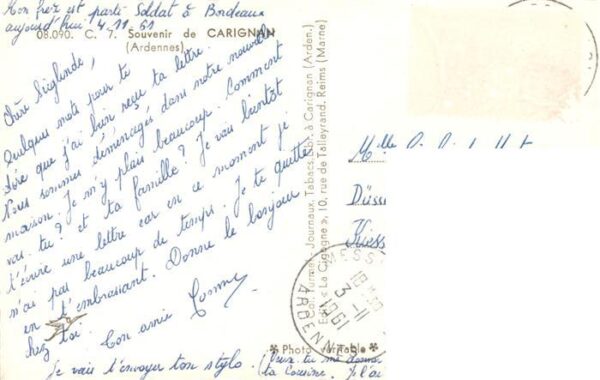 Mon frère est parti Soldat à Bordeaux
aujourd'hui 4.11.61
08.090. C. 7. Souvenir de CARIGNAN
(Ardennes)
Chère Sieglinde,
Quelques mots pour te
dire que j'ai bien reçu ta lettre.
Nous sommes déménagés dans notre nouvelle
maison. Je m'y plais beaucoup. Comment
vas-tu? et ta famille? Je vais bientôt
t'écrire une lettre car en ce moment je
n'ai pas beaucoup de temps. Je te quitte
en t'embrassant. Donne le bonjour
chez toi.
Ton amie
Je vais t'envoyer ton stylo. (Peux tu me donner
ta Cousine.
Journaux, Tabacs, à Carignan (Arden.)
Edit. « La Cigogne », 10, rue de Talleyrand, Reims (Marne)
✽ Photo véritable ✽
Mlle
Düsse
MESS
18H
3-11
1961
ARDENNES